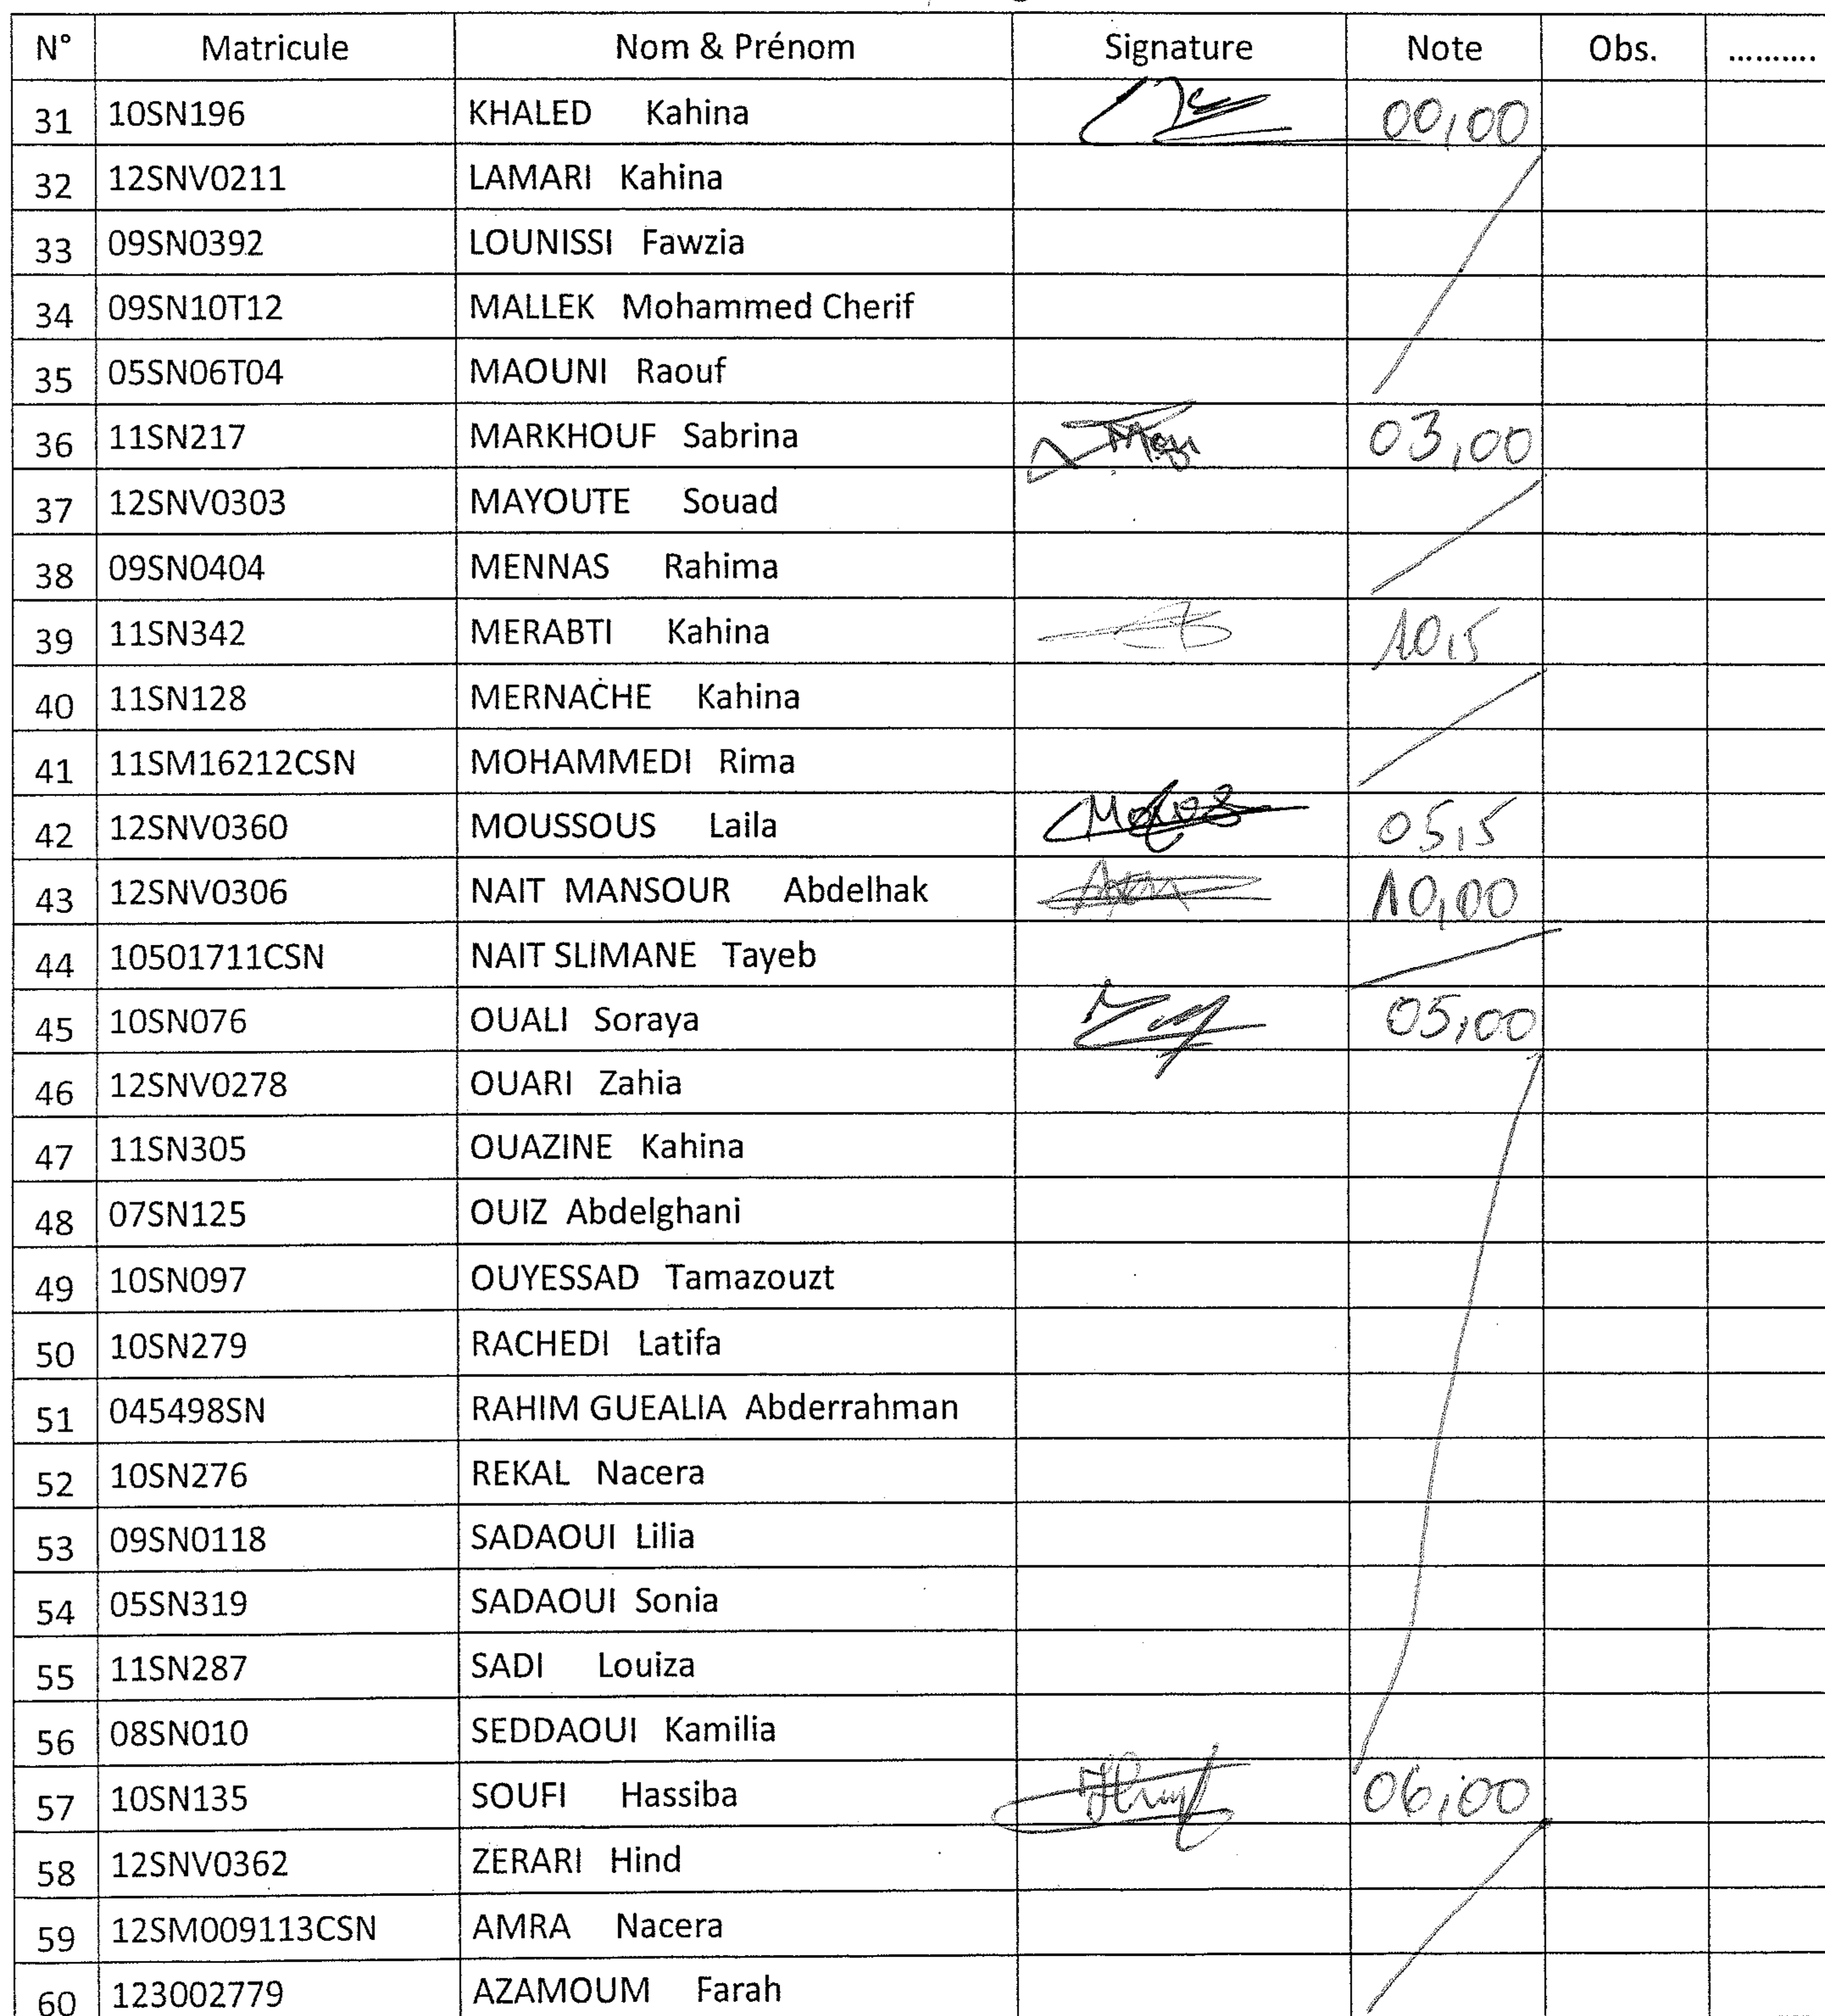 N° Matricule Nom & Prénom Signature Note Obs. ..........
31 10SN196 KHALED Kahina 00,00
32 12SNV0211 LAMARI Kahina
33 09SN0392 LOUNISSI Fawzia
34 09SN10T12 MALLEK Mohammed Cherif
35 05SN06T04 MAOUNI Raouf
36 11SN217 MARKHOUF Sabrina 03,00
37 12SNV0303 MAYOUTE Souad
38 09SN0404 MENNAS Rahima
39 11SN342 MERABTI Kahina 10,5
40 11SN128 MERNACHE Kahina
41 11SM16212CSN MOHAMMEDI Rima
42 12SNV0360 MOUSSOUS Laila 05,5
43 12SNV0306 NAIT MANSOUR Abdelhak 10,00
44 10501711CSN NAIT SLIMANE Tayeb
45 10SN076 OUALI Soraya 05,00
46 12SNV0278 OUARI Zahia
47 11SN305 OUAZINE Kahina
48 07SN125 OUIZ Abdelghani
49 10SN097 OUYESSAD Tamazouzt
50 10SN279 RACHEDI Latifa
51 045498SN RAHIM GUEALIA Abderrahman
52 10SN276 REKAL Nacera
53 09SN0118 SADAOUI Lilia
54 05SN319 SADAOUI Sonia
55 11SN287 SADI Louiza
56 08SN010 SEDDAOUI Kamilia
57 10SN135 SOUFI Hassiba 06,00
58 12SNV0362 ZERARI Hind
59 12SM009113CSN AMRA Nacera
60 123002779 AZAMOUM Farah